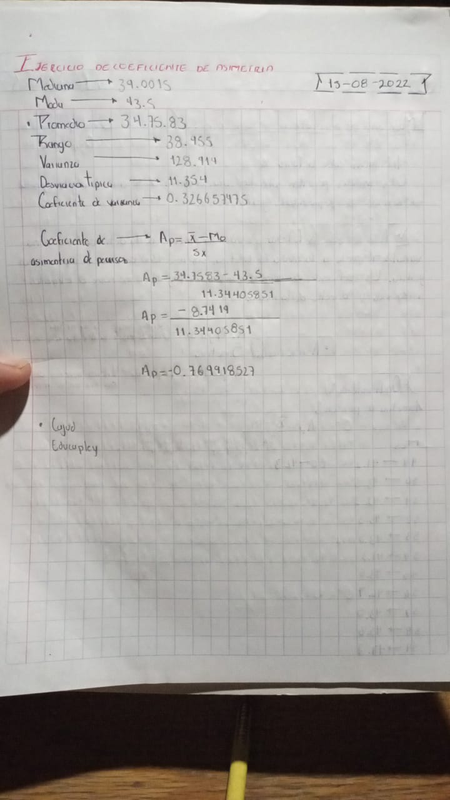 EJERCICIO DE COEFICIENTE DE ASIMETRIA
13-08-2022
Mediana → 34.0015
Moda → 43.5
• Promedio → 34.75.83
Rango → 38.955
Varianza → 128.914
Desviacion tipica → 11.354
Coeficiente de varianza → 0.326657475
Coeficiente de → Ap = x̄ - Mo
asimentria de pearson Sx
Ap = 34.7583 - 43.5
11.34405851
Ap = - 8.7419
11.34405851
Ap = -0.769918527
Educapley